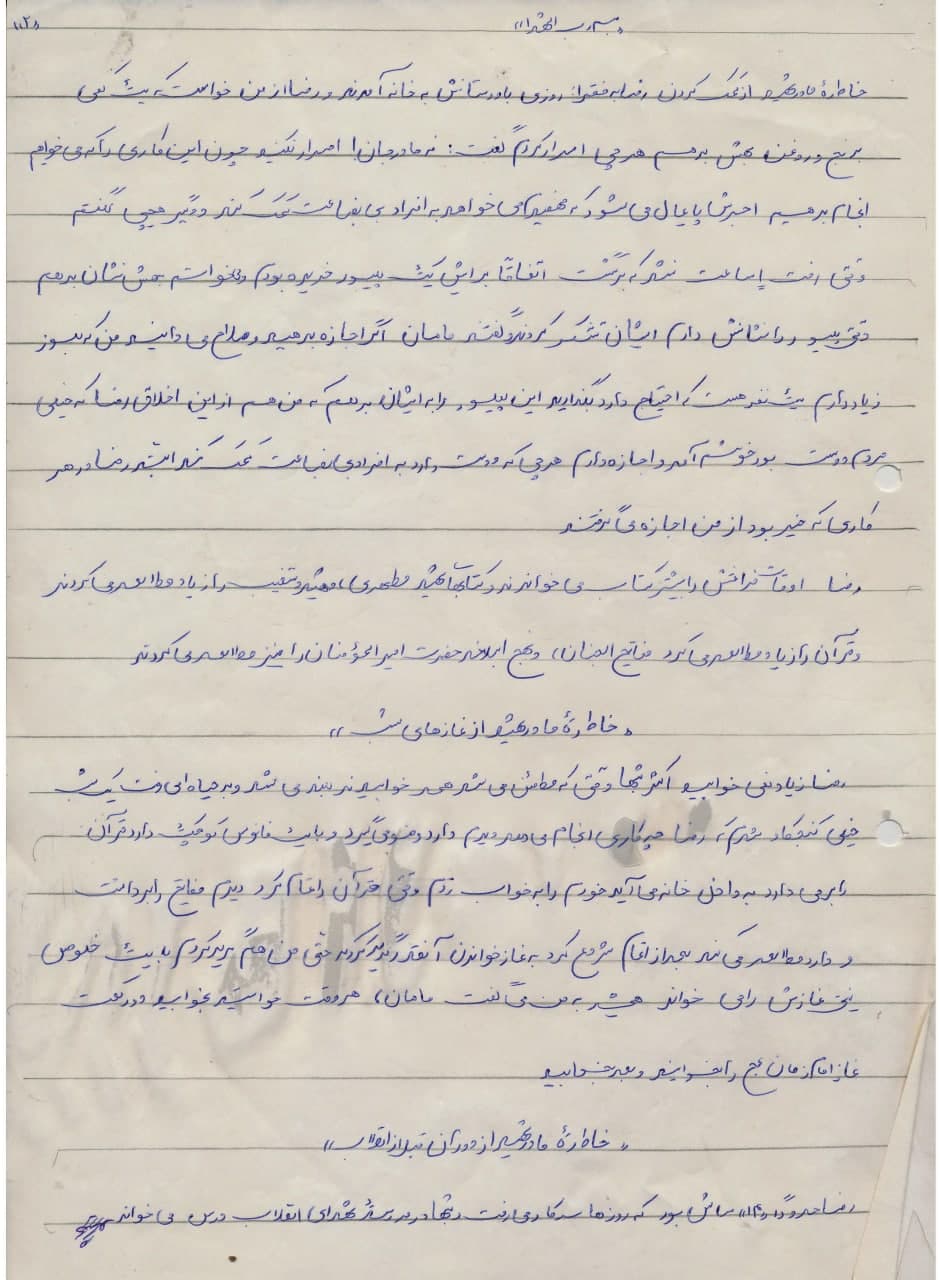 «بسم رب الشهدا»
«۲»
خاطرهٔ مادر شهید از کمک کردن رضا به فقرا: روزی با دوستانش به خانه آمدند و رضا از من خواست که یک کمی
برنج و روغن بهش بدهم هرچی اصرار کردم گفت: نه مادرجان! اصرار نکنید چون این کاری را که می‌خواهم
انجام بدهم اجرش پایمال می‌شود که فهمیدم می‌خواهد به افرادی بی‌بضاعت کمک کند و دیگر هیچی نگفتم
وقتی رفت یک ساعت نشد که برگشت اتفاقاً برایش یک پلیور خریده بودم و می‌خواستم بهش نشان بدهم
وقتی پلیور را نشانش دادم ایشان تشکر کردند و گفتند مامان اگر اجازه بدهید و صلاح می‌دانید من که پلیور
زیاد دارم یک نفر هست که احتیاج دارد بگذارید این پلیور را به ایشان بدهم که من هم از این اخلاق رضا که خیلی
مردم دوست بود خوشم آمد و اجازه دادم هرچی که دوست دارد به افرادی بی‌بضاعت کمک کند البته رضا در هر
کاری که خیر بود از من اجازه می‌گرفتند
رضا اوقات فراغتش را بیشتر کتاب می‌خواندند و کتابهای شهید مطهری، شهید دستغیب را زیاد مطالعه می‌کردند
و قرآن را زیاد مطالعه می‌کرد مفاتیح الجنان، و نهج البلاغه حضرت امیرالمؤمنان را نیز مطالعه می‌کردند
«خاطرهٔ مادر شهید از نمازهای شب»
رضا زیاد نمی‌خوابید اکثر شبها وقتی که مطمئن می‌شد همه خوابیدند بلند می‌شد و به حیاط می‌رفت یک شب
خیلی کنجکاو شدم که رضا چه کاری انجام می‌دهد دیدم دارد وضو می‌گیرد و با یک فانوس کوچک دارد قرآن
را برمی‌دارد به داخل خانه می‌آید خودم را به خواب زدم وقتی قرآن را تمام کرد دیدم مفاتیح را برداشت
و دارد مطالعه می‌کند بعد از اتمام شروع کرد به نماز خواندن آنقدر گریه کرد که حتی من هم گریه کردم با یک خلوص
نیتی نمازش را می‌خواند همیشه به من می‌گفت مامان، هر وقت خواستید بخوابید دو رکعت
نماز امام زمان عج را بخوانید و بعد بخوابید
«خاطرهٔ مادر شهید از دوران قبل از انقلاب»
رضا حدوداً «۱۴» سالش بود که روزها سر کار می‌رفت و شبها در مدرسهٔ شهدای انقلاب درس می‌خواند